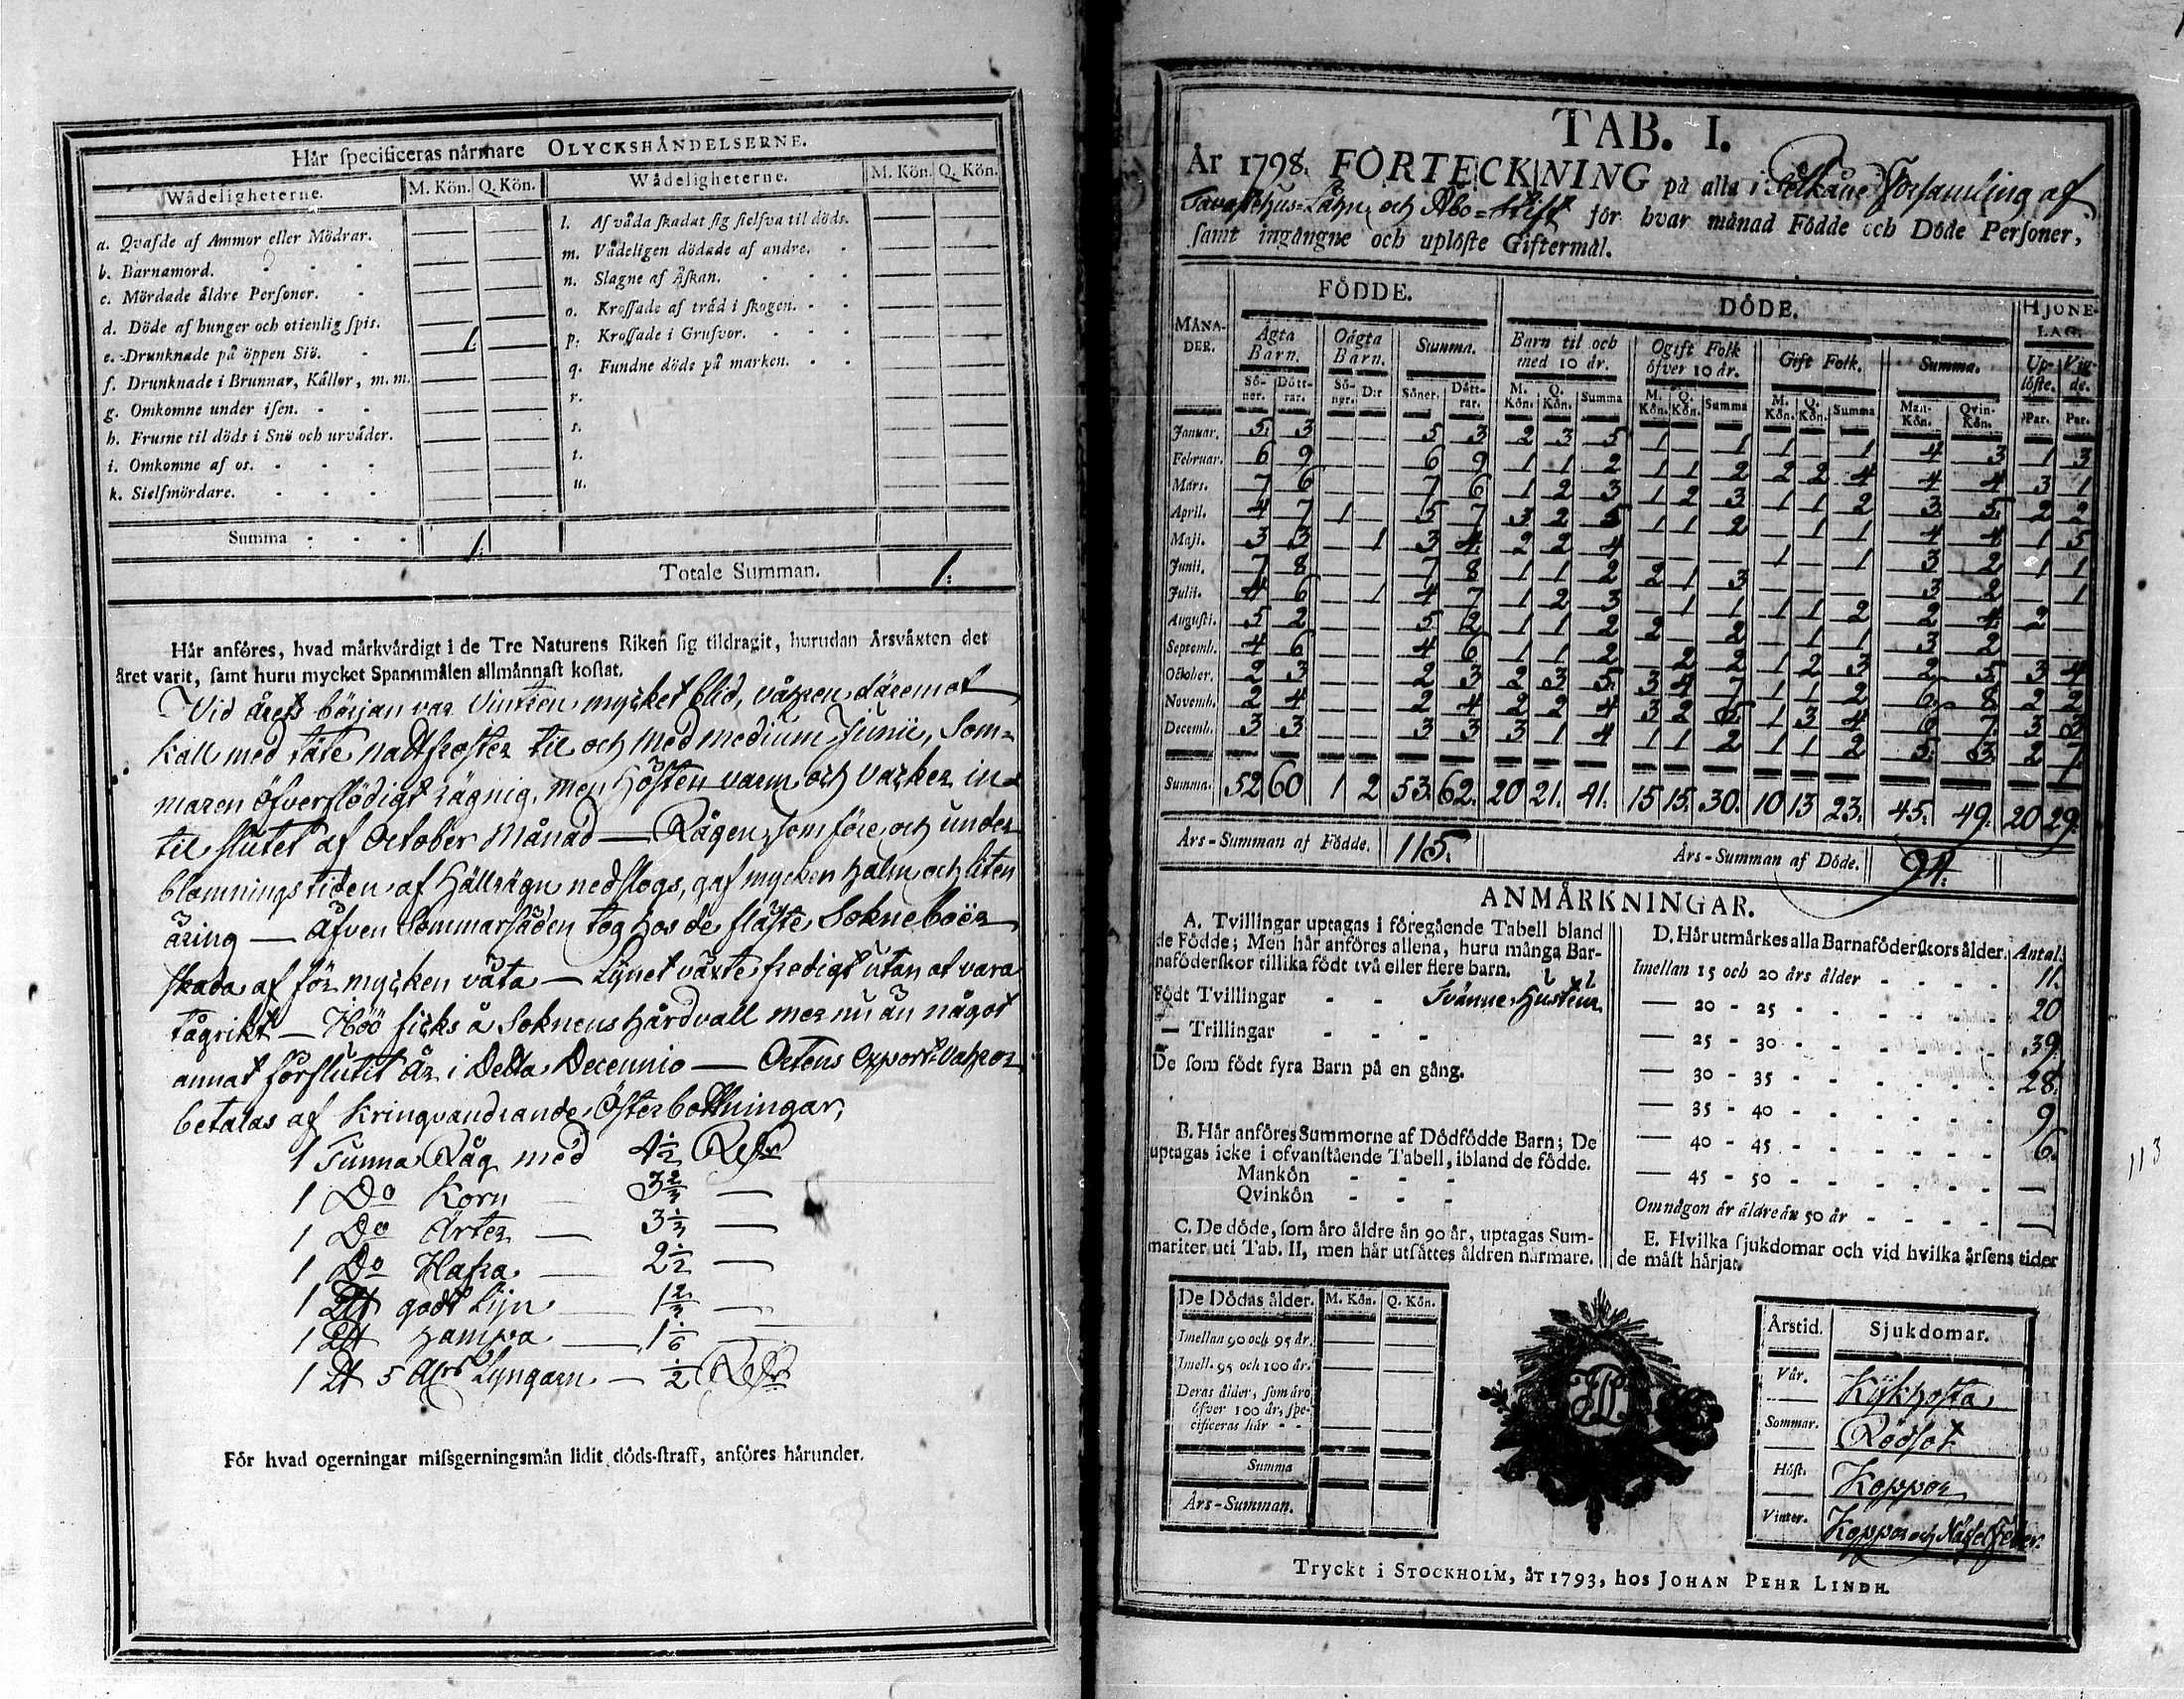 Hår specificeras nårmare OLYCKSHÅNDELSERNE.
Wådeligheterne. M. Kön. Q. Kön. Wådeligheterne. M. Kön. Q. Kön.
a. Qvafde af Ammor eller Mödrar.
b. Barnamord.
c. Mördade åldre Personer.
d. Döde af hunger och otienlig spis.
e. Drunknade på öppen Siö. 1
f. Drunknade i Brunnar, Kållor, m. m.
g. Omkomne under isen.
h. Frusne til döds i Snö och urvåder.
i. Omkomne af os.
k. Sielfmördare.
l. Af våda skadat sig sielfva til döds.
m. Vådeligen dödade af andre.
n. Slagne af Åskan.
o. Krossade af tråd i skogen.
p. Krossade i Grufvor.
q. Fundne döde på marken.
r.
s.
t.
u.
Summa 1.
Totale Summan. 1.
Hår anföres, hvad mårkvårdigt i de Tre Naturens Riken sig tildragit, hurudan Årsvåxten det
året varit, samt huru mycket Spannmålen allmånnast kostat.
Vid årets början var Vintren mycket blid, våren däremot
kall med täte nattfroster til och med medium Junii, Som-
maren öfverflödigt rägnig, men Hösten varm och vacker in-
til slutet af October Månad — Rågen, som före och under
blomningstiden af Hällrägn nedslogs, gaf mycken halm och liten
äring — Äfven Sommarsäden tog hos de fläste Sokneboer
skada af för mycken väta — Lijnet växte frodigt utan at vara
tågrikt — Höö ficks å Soknens hårdvall mer nu än något
annat förflutit år i Detta Decennio — Ortens Export-Vahror
betalas af kringvandrande Österbottningar,
1 Tunna Råg med 4 1/2 Rdr
1 Do Korn — 3 2/3 —
1 Do Ärter — 3 1/3 —
1 Do Hafra — 2 1/2 —
1 godt Lijn — 1 2/3 —
1 Hampa — 1 1/6 —
1 5 Lijngarn — 1/2 Rdr
För hvad ogerningar missgerningsmån lidit döds-straff, anföres hårunder.
TAB. I.
År 1798. FÖRTECKNING på alla i Pelkäne Församling af
Tavastehus-Lähn och Åbo-Stift för hvar månad Födde och Döde Personer,
samt ingångne och uplöste Giftermål.
MÅNADER. FÖDDE. DÖDE. HJONELAG.
Ägta Barn. Oågta Barn. Summa. Barn til och med 10 år. Ogift Folk öfver 10 år. Gift Folk. Summa. Uplöste. Vigde.
Söner. Döttrar. Söner. D:r Söner. Döttrar. M. Kön. Q. Kön. Summa M. Kön. Q. Kön. Summa M. Kön. Q. Kön. Summa Man-Kön. Qvin-Kön. Par. Par.
Januar. 5 3 — — 5 3 2 3 5 1 — 1 1 — 1 4 3 1 3
Februar. 6 9 — — 6 9 1 1 2 1 1 2 2 2 4 4 4 3 1
Mars. 7 6 — — 7 6 1 2 3 1 2 3 1 1 2 3 5 2 2
April. 4 7 1 — 5 7 3 2 5 1 1 2 — 1 1 4 4 1 5
Maji. 3 3 — 1 3 4 2 2 4 — — — 1 — 1 3 2 1 1
Junii. 7 8 — — 7 8 1 1 2 2 1 3 — — — 3 2 — 1
Julii. 4 6 — 1 4 7 1 2 3 — 1 1 1 1 2 2 4 2 —
Augusti. 5 2 — — 5 2 1 1 2 2 — 2 — 1 1 3 2 — —
Septemb. 4 6 — — 4 6 1 1 2 — 2 2 1 2 3 2 5 3 4
October. 2 3 — — 2 3 2 3 5 3 4 7 1 1 2 6 8 2 2
Novemb. 2 4 — — 2 4 2 2 4 3 2 5 1 3 4 6 7 3 3
Decemb. 3 3 — — 3 3 3 1 4 1 1 2 1 1 2 5 3 2 7
Summa. 52 60 1 2 53. 62. 20 21. 41. 15 15. 30. 10 13 23. 45. 49. 20 29.
Års-Summan af Födde. 115. Års-Summan af Döde. 94.
ANMÅRKNINGAR.
A. Tvillingar uptagas i föregående Tabell bland
de Födde; Men hår anföres allena, huru många Bar-
naföderskor tillika födt två eller flere barn.
Födt Tvillingar - - Tvänne Hustrur
— Trillingar - - -
De som födt fyra Barn på en gång.
B. Hår anföres Summorne af Dödfödde Barn; De
uptagas icke i ofvanstående Tabell, ibland de födde.
Mankön - - -
Qvinkön - - -
C. De döde, som åro åldre ån 90 år, uptagas Sum-
mariter uti Tab. II, men hår utsåttes åldren nårmare.
D. Hår utmårkes alla Barnaföderskors ålder. Antal.
Imellan 15 och 20 års ålder - - - - 11.
— 20 - 25 - - - - 20
— 25 - 30 - - - - 39
— 30 - 35 - - - - 28.
— 35 - 40 - - - - 9
— 40 - 45 - - - - 6.
— 45 - 50 - - - - —
Om någon år åldre ån 50 år - - - - —
E. Hvilka sjukdomar och vid hvilka årsens tider
de måst hårjat.
113
De Dödas ålder. M. Kön. Q. Kön.
Imellan 90 och 95 år.
Imell. 95 och 100 år.
Deras ålder, som åro
öfver 100 år, spe-
cificeras hår - -
Summa
Års-Summan.
Årstid. Sjukdomar.
Vår. Kikhosta
Sommar. Rödsot
Höst. Koppor
Vinter. Koppor och Nässelfeber.
Tryckt i STOCKHOLM, åt 1793, hos JOHAN PEHR LINDH.